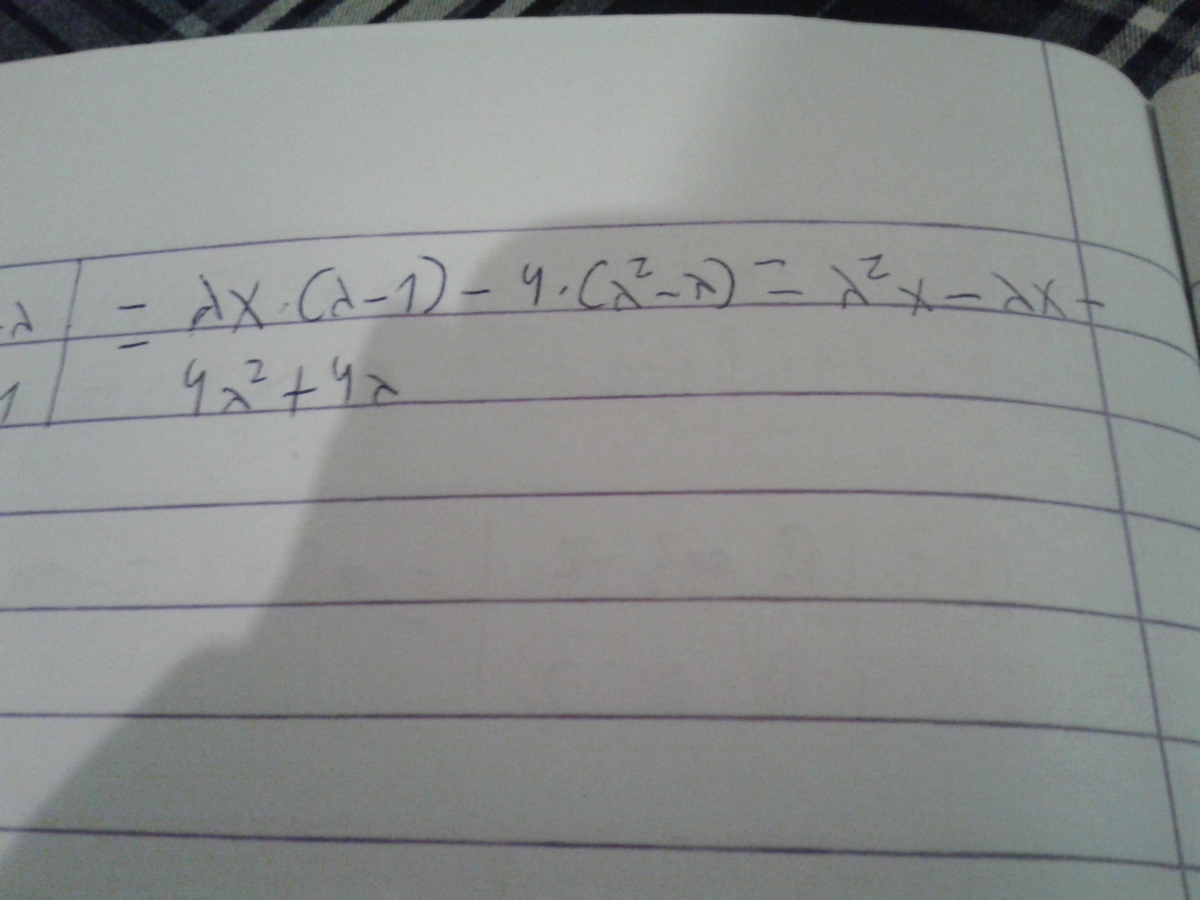 -λ | = λx·(λ-1) - 4·(λ²-λ) = λ²x - λx -
1 | 4λ² + 4λ